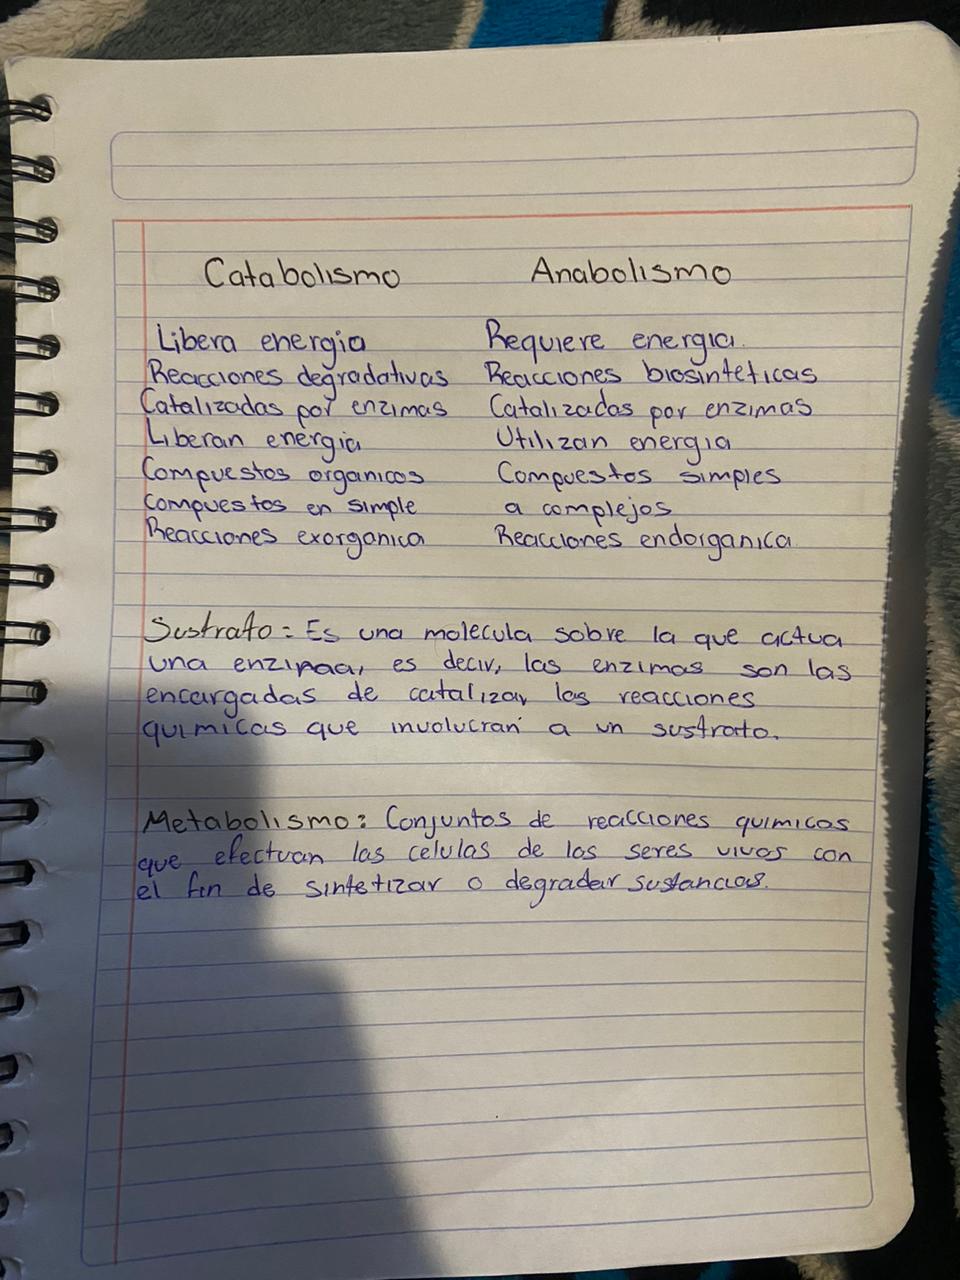 Catabolismo Anabolismo
Libera energia Requiere energia.
Reacciones degradativas Reacciones biosinteticas
Catalizadas por enzimas Catalizadas por enzimas
Liberan energia Utilizan energia
Compuestos organicos Compuestos simples
compuestos en simple a complejos
Reacciones exorganica Reacciones endorganica.
Sustrato = Es una molecula sobre la que actua
una enzimaa, es decir, las enzimas son las
encargadas de catalizar las reacciones
quimicas que involucran a un sustrato.
Metabolismo: Conjuntos de reacciones quimicas
que efectuan las celulas de los seres vivos con
el fin de sintetizar o degradar sustancias.